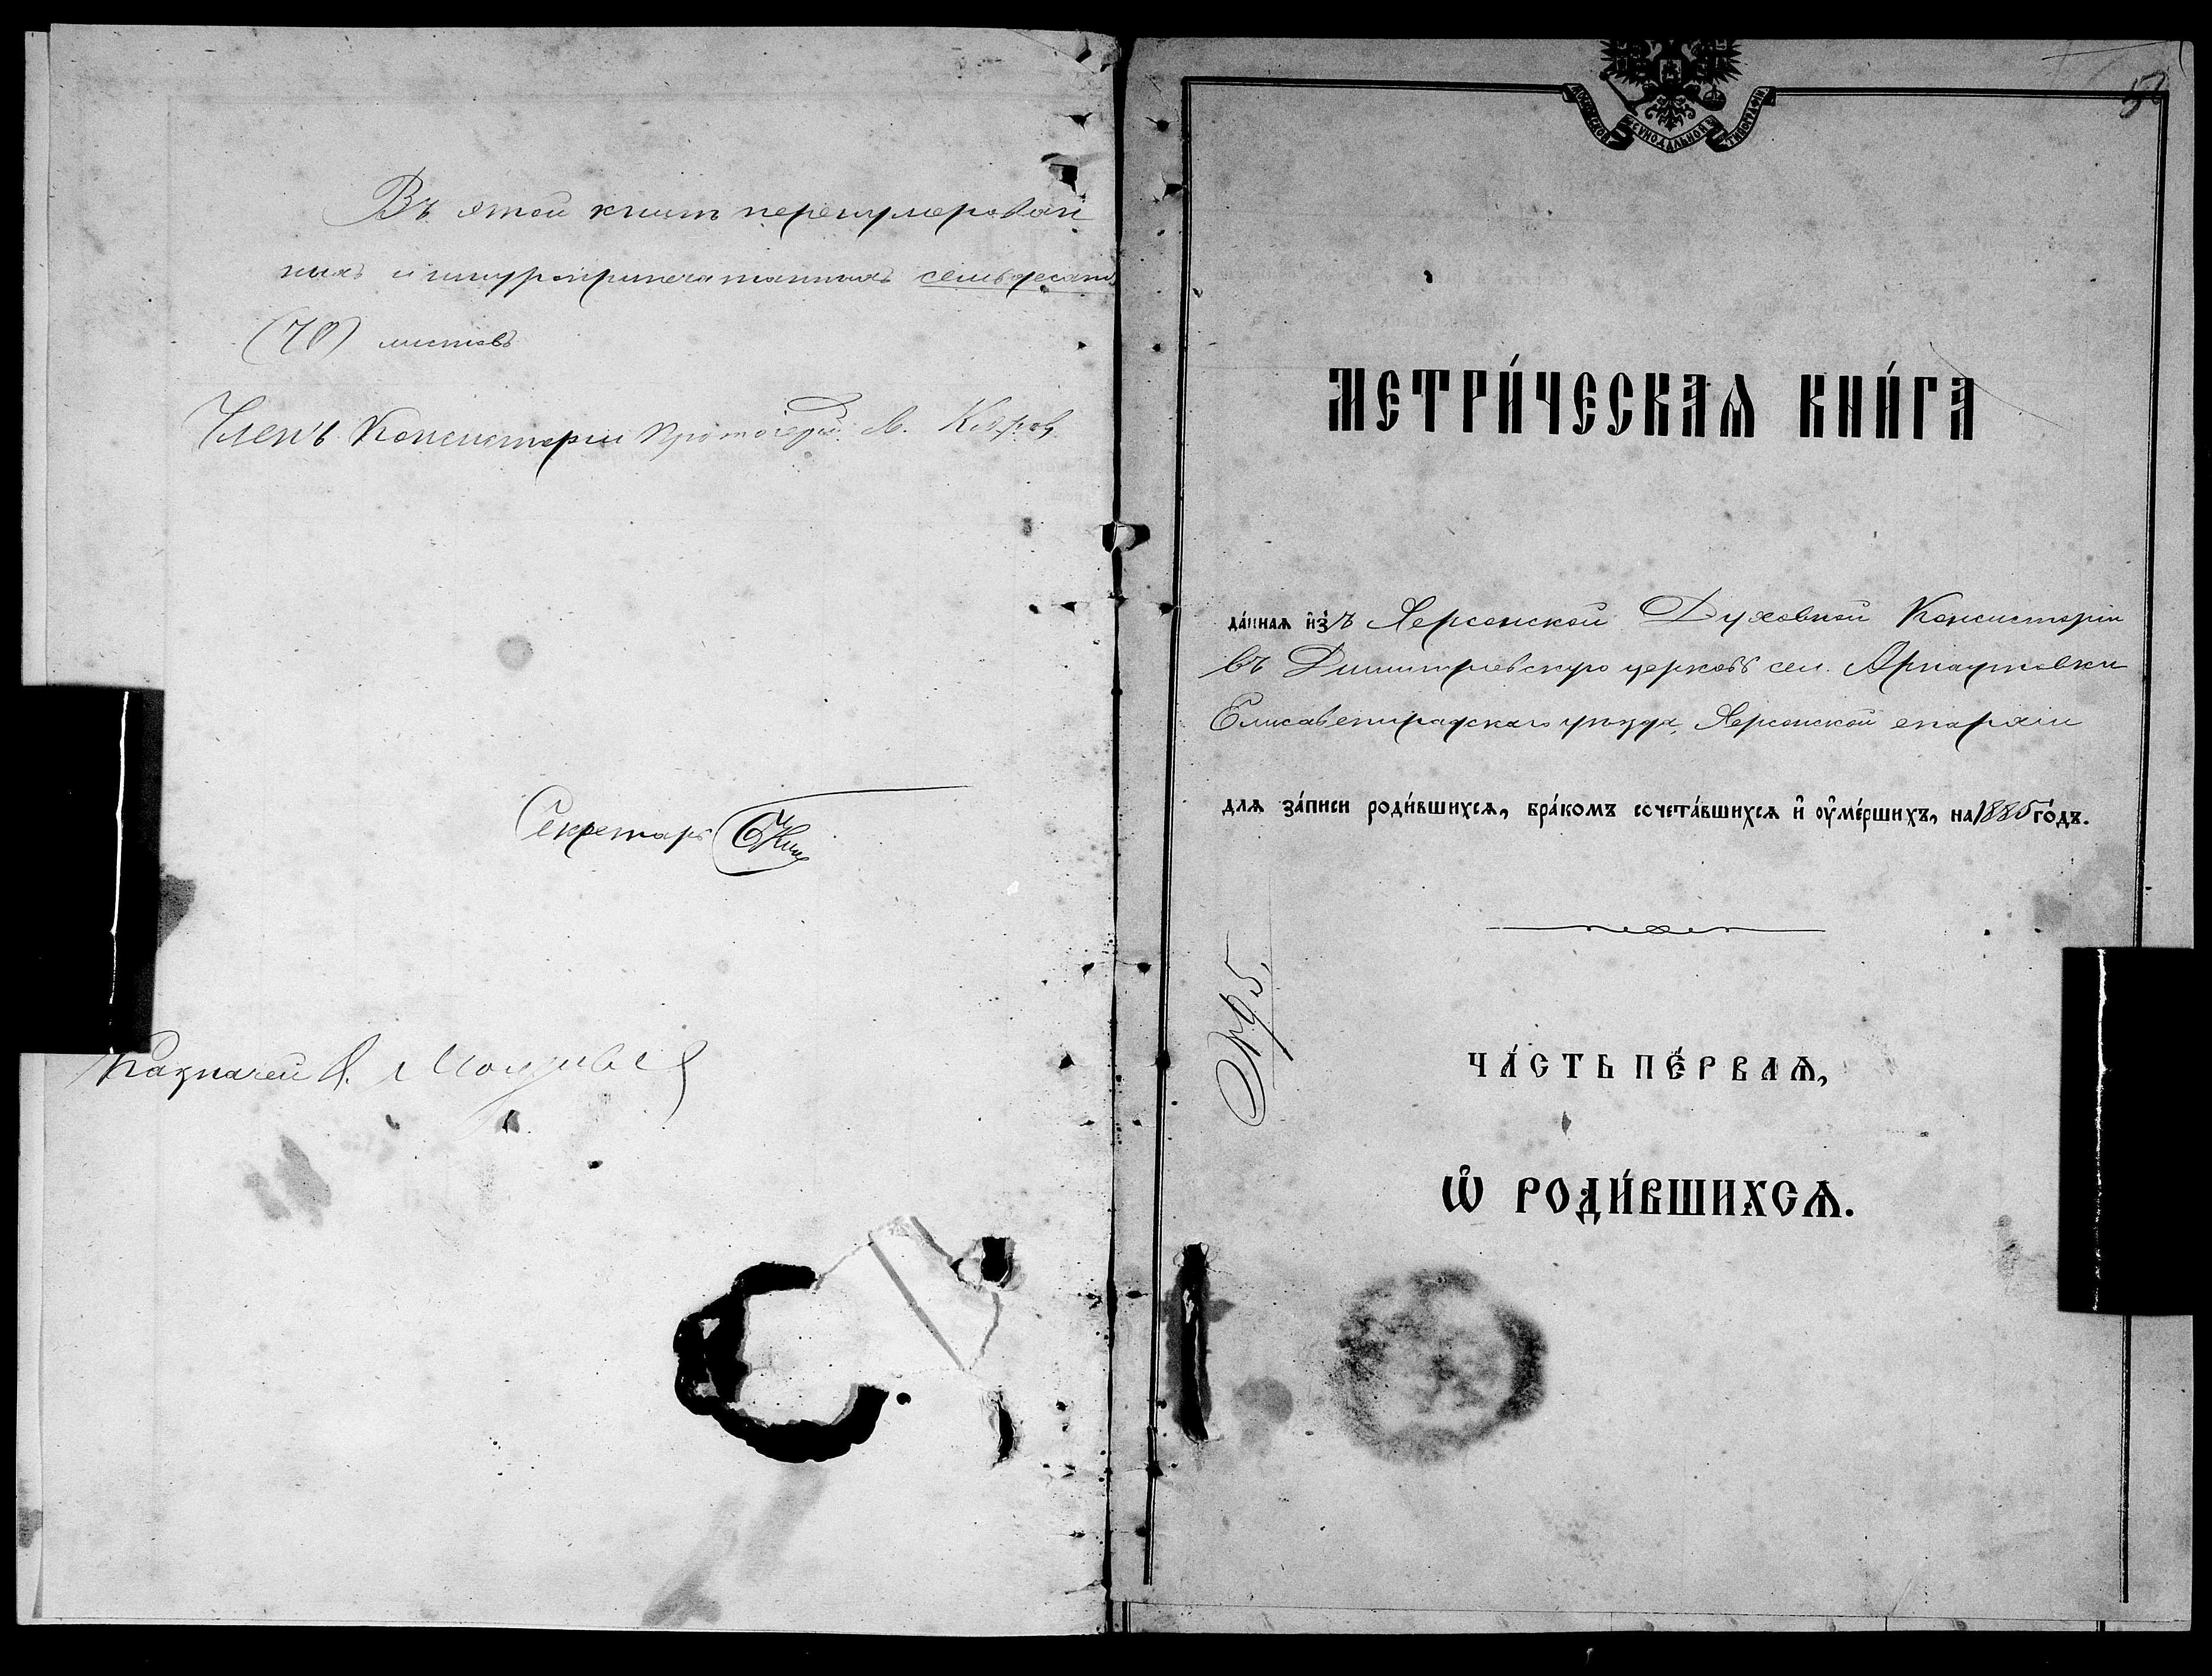 Въ этой книгѣ перенумерован
ныхъ и шнуроприпечатанныхъ семьдесятъ
(70) листовъ
Членъ Консисторіи Протоіерей
Секретарь
Казначей
МОСКОВСКОЙ СѴНОДАЛЬНОЙ ТИПОГРАФІИ
МЕТРИ́ЧЕСКАѦ КНИ́ГА
да́ннаѧ и҆зъ Херсонской Духовной Консисторіи
въ Димитріевскую церковь сел. Арнаутовки
Елисаветградскаго уѣзда, Херсонской епархіи
для за́писи роди́вшихсѧ, бра́комъ сочета́вшихсѧ и҆ оу҆ме́ршихъ, на 1885 го́дъ.
№ 95.
ЧА́СТЬ ПЕ́РВАѦ,
Ѡ҆ РОДИ́ВШИХСѦ.